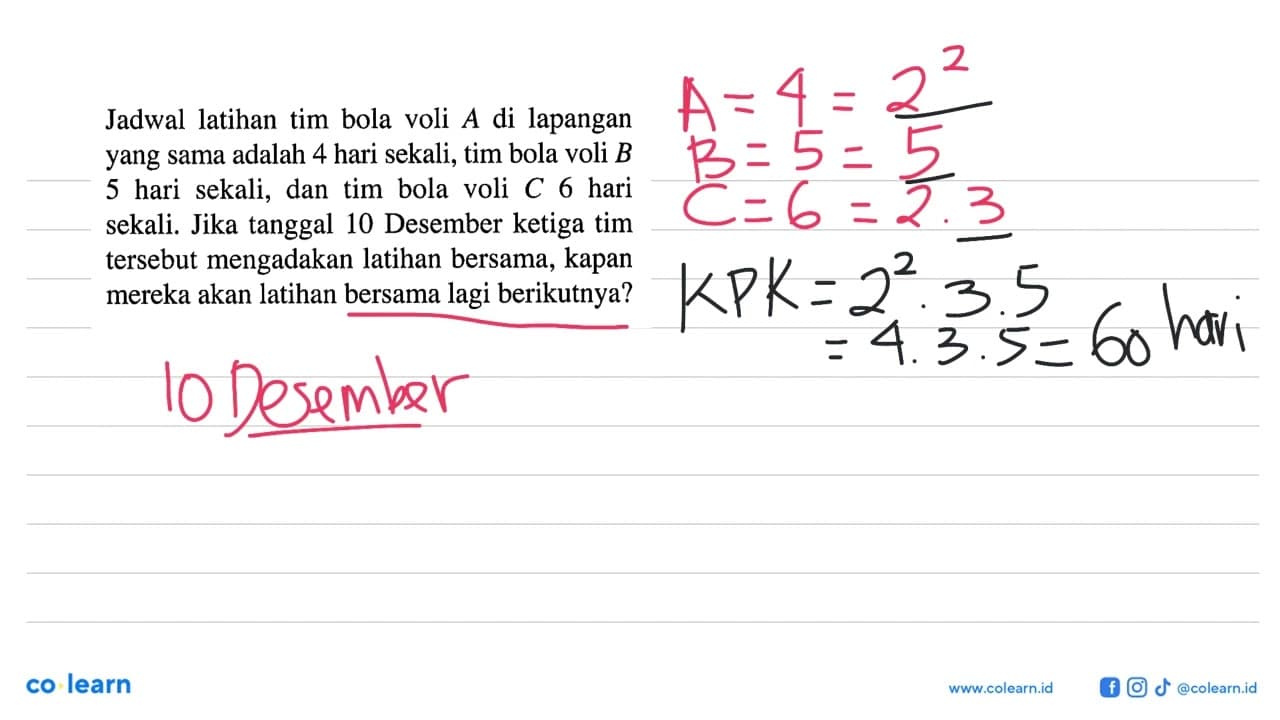 Jadwal latihan tim bola voli A di lapangan
yang sama adalah 4 hari sekali, tim bola voli B
5 hari sekali, dan tim bola voli C 6 hari
sekali. Jika tanggal 10 Desember ketiga tim
tersebut mengadakan latihan bersama, kapan
mereka akan latihan bersama lagi berikutnya?
10 Desember
A = 4 = 2²
B = 5 = 5
C = 6 = 2.3
KPK = 2².3.5
= 4.3.5 = 60 hari
co learn
www.colearn.id
@colearn.id